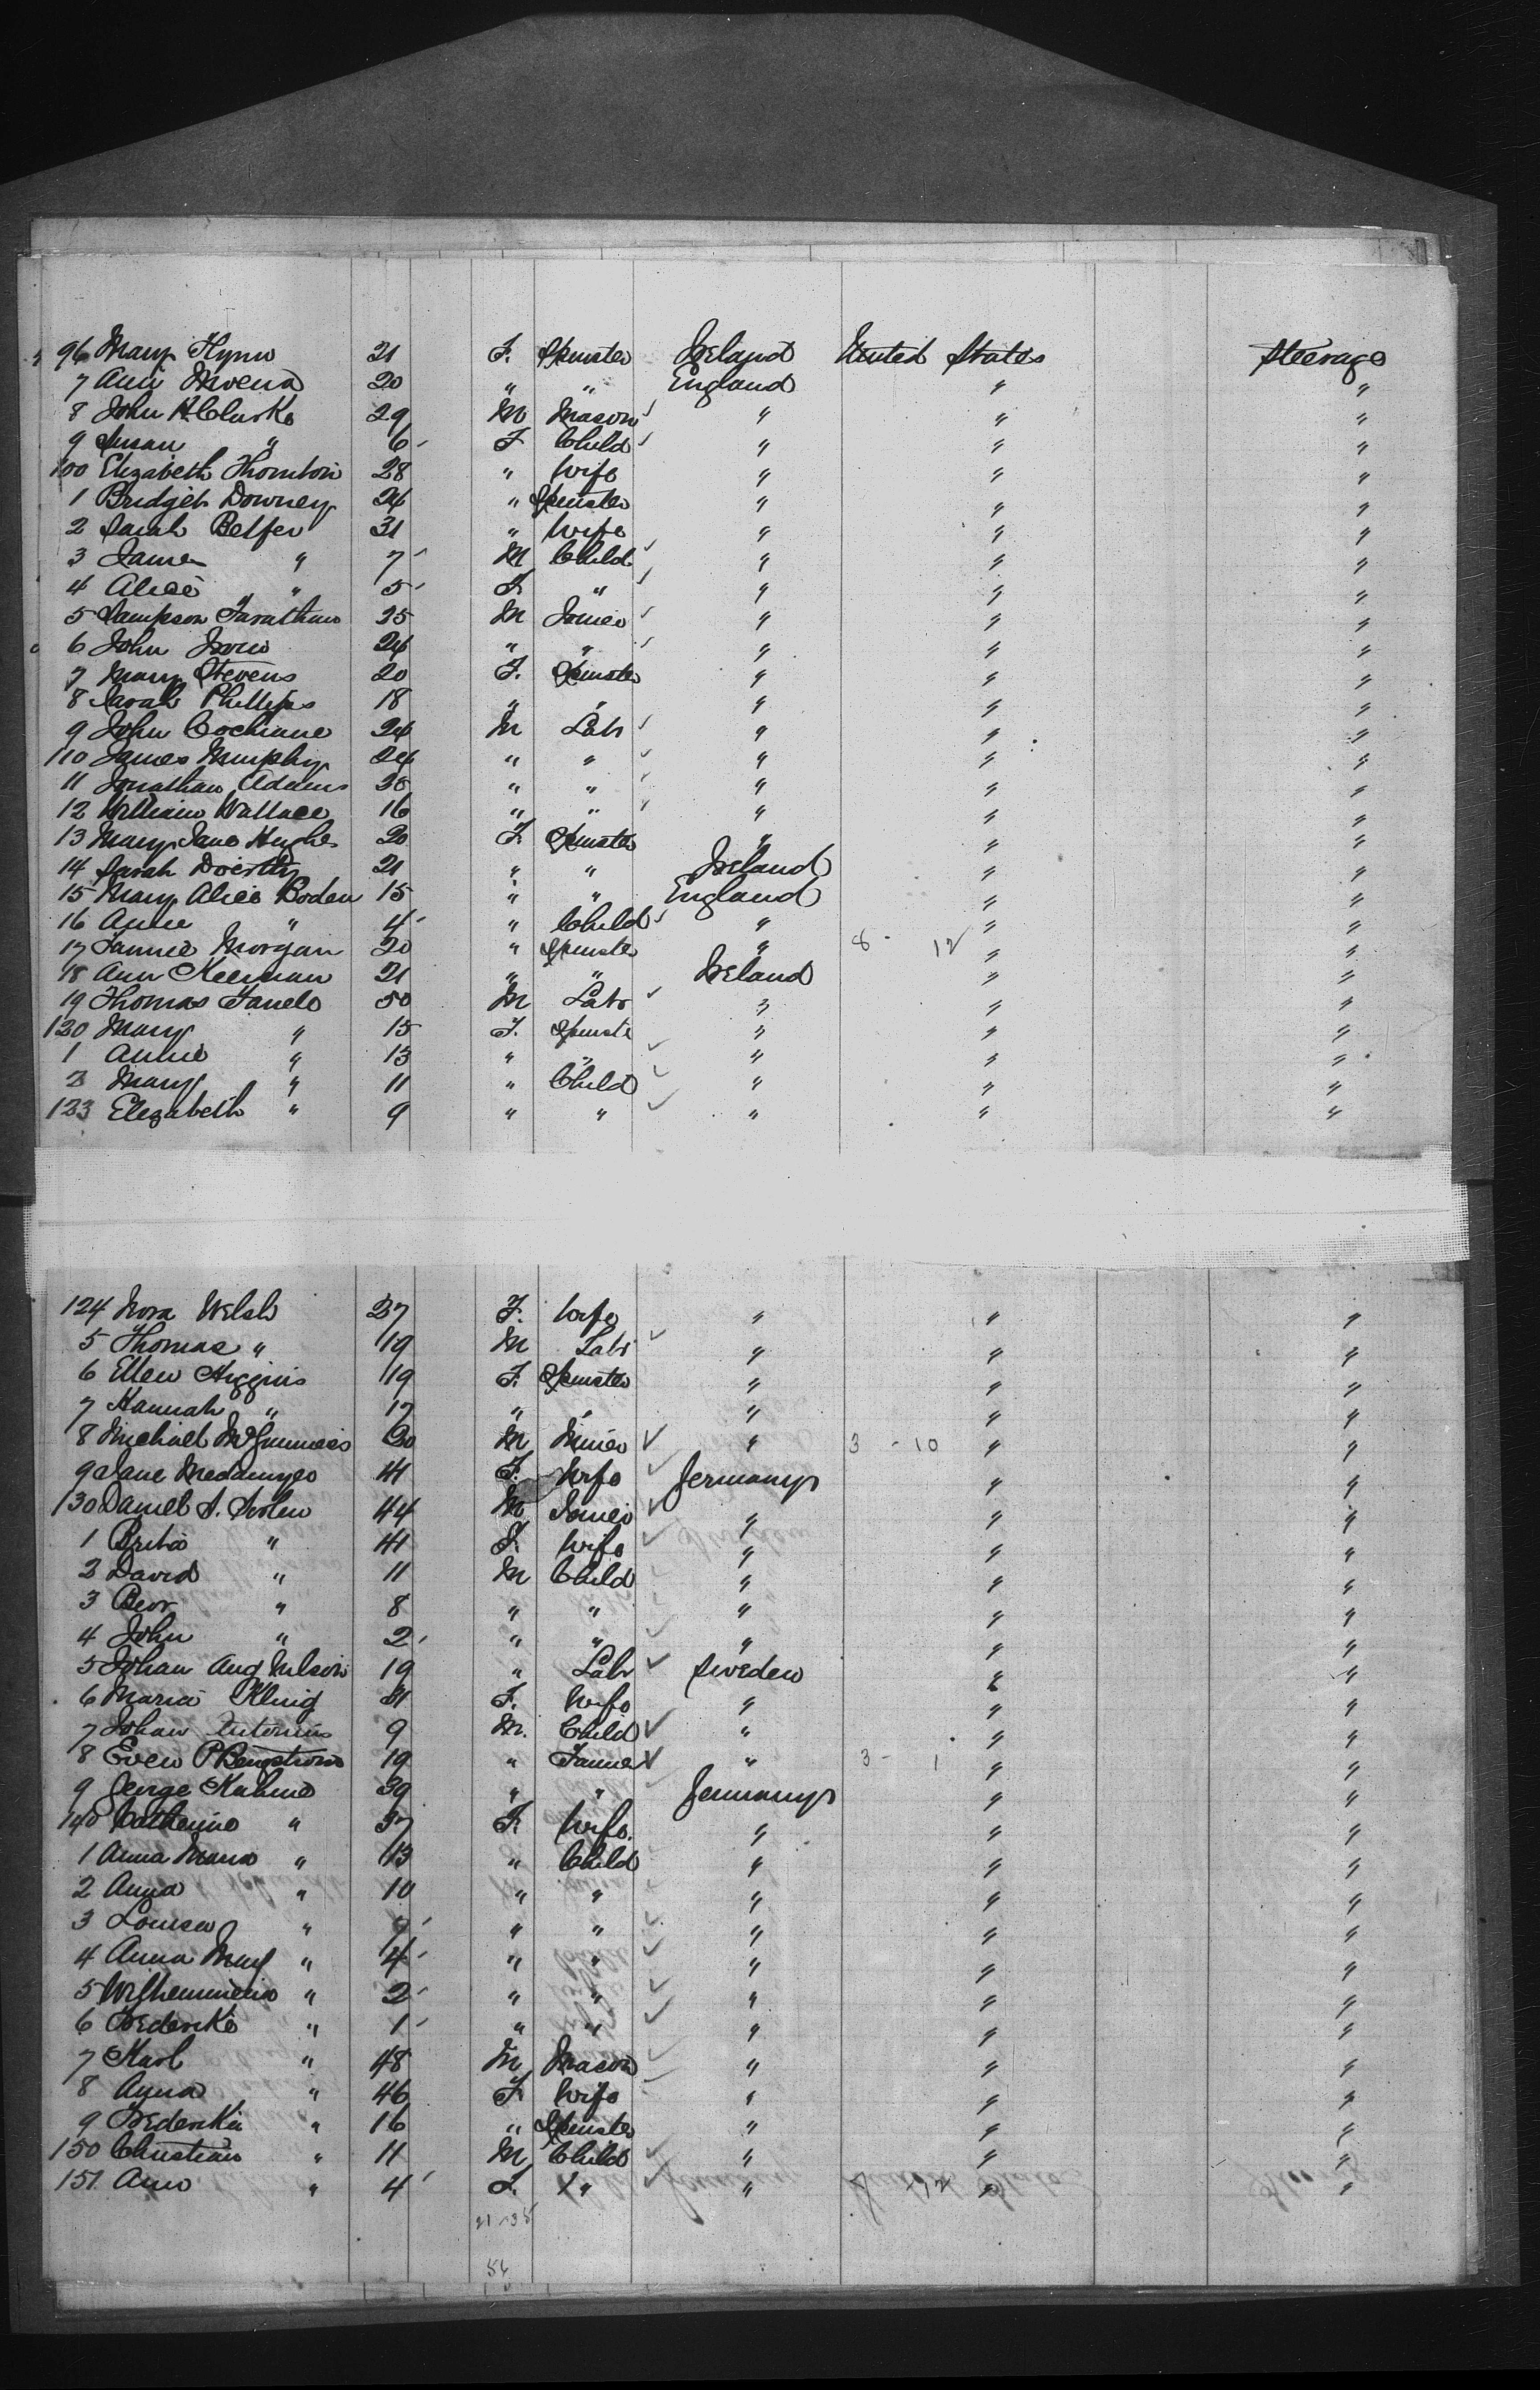 96 Mary Flynn 21 F. Spinster Ireland United States Steerage
7 Ann 20 " " England " "
8 John H. Clarke 29 M Mason " " "
9 Susan " 6 F Child " " "
100 Elizabeth Thornton 28 " Wife " " "
1 Bridget Downey 24 " Spinster " " "
2 Sarah Belfer 31 " Wife " " "
3 James " 7 M Child " " "
4 Alice " 5 F. " " " "
5 Sampson 25 M " " "
6 John 24 " " " " "
7 Mary Stevens 20 F. Spinster " " "
8 Sarah Phillips 18 " " " " "
9 John Cochrane 24 M Labr " " "
110 James Murphy 24 " " " " "
11 Jonathan Addens " " " " "
12 William Wallace 16 " " " " "
13 Mary Jane Hughes 20 F. Spinster " " "
14 Sarah Doerthy 21 " " Ireland " "
15 Mary Alice Boden 15 " " England " "
16 Anne " 4 " Child " " "
17 Fannie Morgan 20 " Spinster " 8 - 12 " "
18 Ann Keernan 21 " " Ireland " "
19 Thomas 50 M Labr " " "
120 Mary " 15 F. Spinste " " "
1 Annie " 13 " " " " "
2 Mary " 11 " Child " " "
123 Elizabeth " 9 " " " " "
124 Nora Welsh 27 F. Wife " " "
5 Thomas " 19 M Labr " " "
6 Ellen Higgins 19 F. Spinster " " "
7 Hannah " 17 " " " " "
8 Michael McGuinness M Miner " 3 - 10 " "
9 Jane 41 F. Wife Germany " "
130 Daniel S. 44 M " " "
1 Brita " 41 F. Wife " " "
2 David " 11 M Child " " "
3 " 8 " " " " "
4 John " 2 " " " " "
5 Johan Aug Nilson 19 " Labr Sweden " "
6 Maria 31 F. Wife " " "
7 Johan Antonius 9 M. Child " " "
8 Even P Bengstrom 19 " " 3 - 1 " "
9 George Kuhme 39 " " Germany " "
140 Catherine " 37 F. Wife. " " "
1 Anna Maria " 13 " Child " " "
2 Anna " 10 " " " " "
3 Louisa " " " " " "
4 Anna Mary " 4 " " " " "
5 Wilhemmena " 2 " " " " "
6 Frederike " 1 " " " " "
7 Karl " 48 M Mason " " "
8 Anna " 46 F Wife " " "
9 Frederika " 16 " Spinster " " "
150 Christian " 11 M Child " " "
151 Ann " 4 F. " " " "
21 - 35